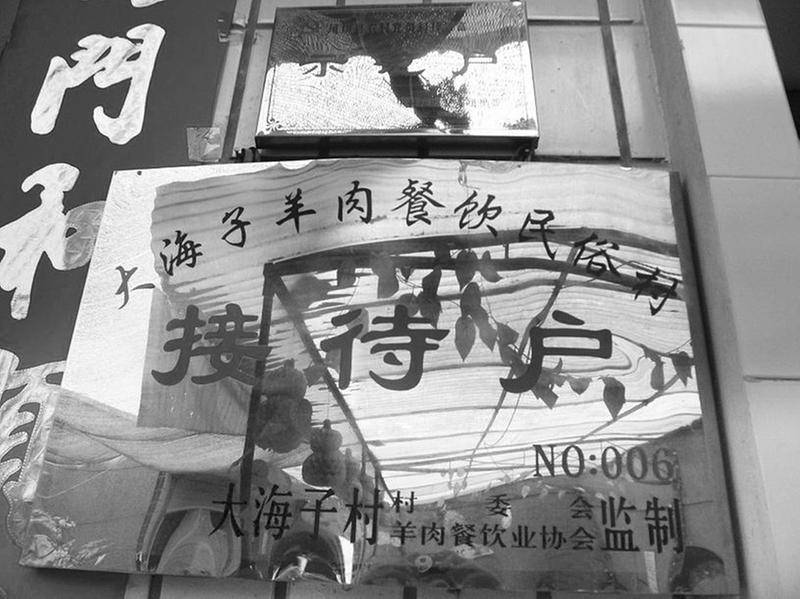 示范户
大海子羊肉餐饮民俗村
接待户
NO:006
大海子村村委会监制
羊肉餐饮业协会
門和